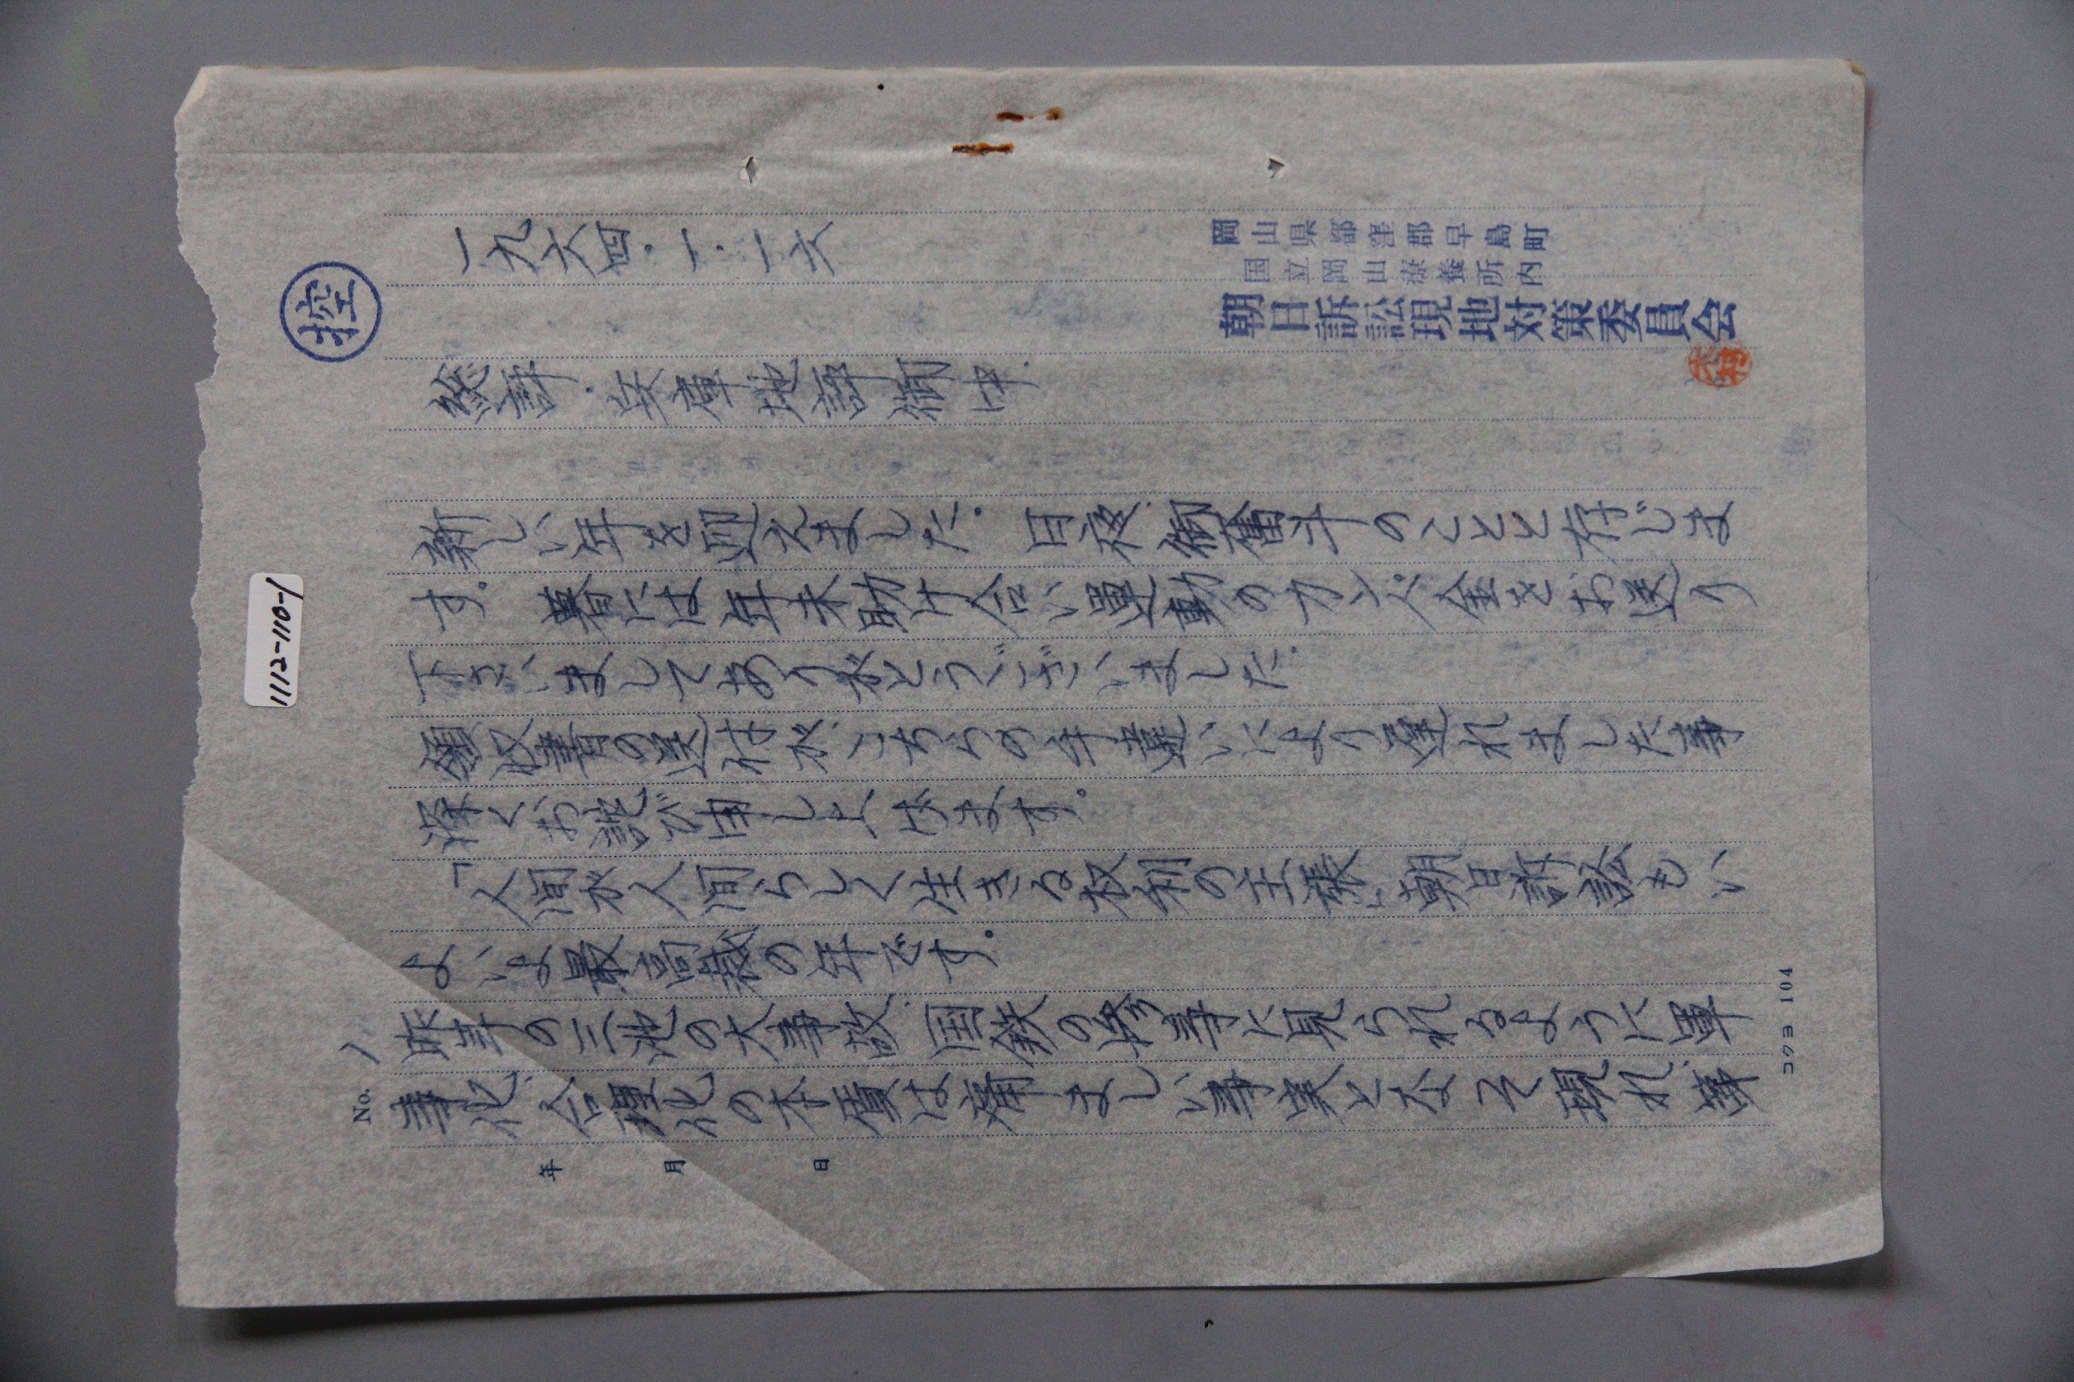 控
一九六四・一・一六
岡山県都窪郡早島町
国立岡山療養所内
朝日訴訟現地対策委員会
木村
総評・兵庫地評御中.
新しい年を迎えました。日夜、御奮斗のことと存じま
す。暮には年末助け合い運動のカンパ金をお送り
下さいましてありがとうございました。
領収書の送付がこちらの手違いにより遅れました事
深くお詫び申し上げます。
「人間が人間らしく生きる权利の主張」朝日訴訟もい
よいよ最高裁の年です。
昨年の三池の大事故、国鉄の惨事に見られるように軍
事化、合理化の本質は痛ましい事実となって現れ、
No. 1
年 月 日
コクヨ 104
1112-110-1